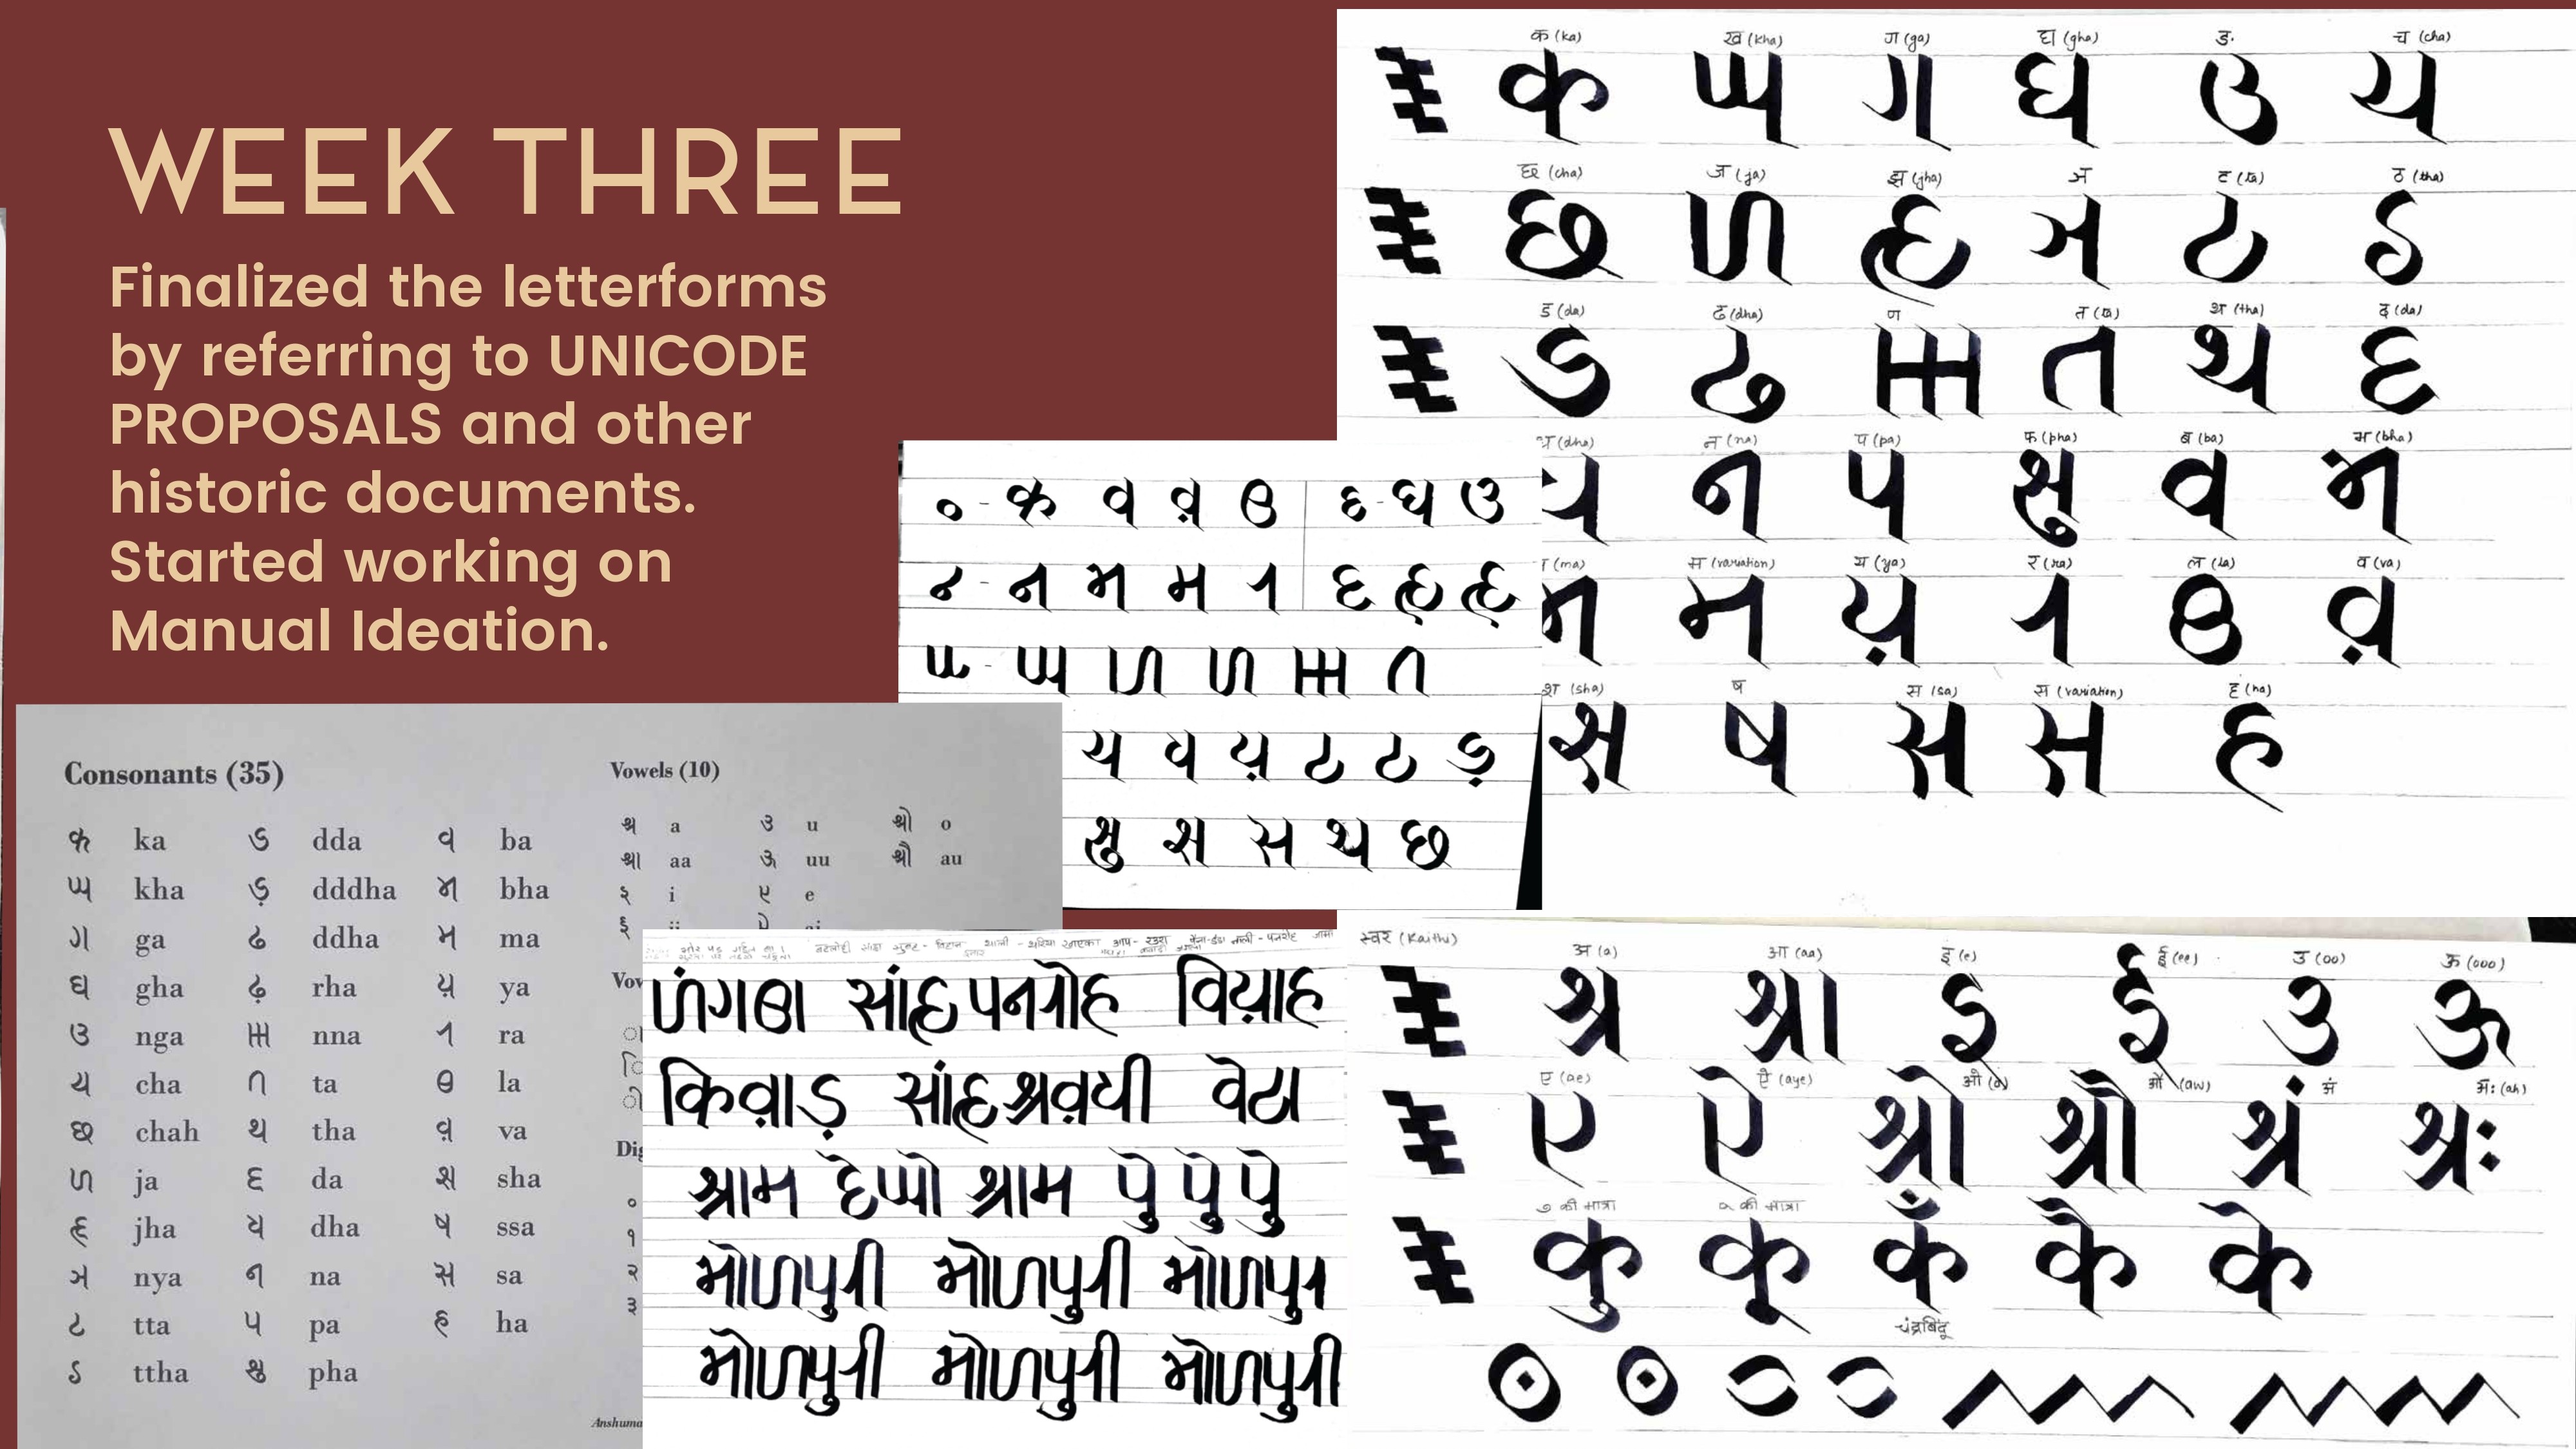 WEEK THREE
Finalized the letterforms
by referring to UNICODE
PROPOSALS and other
historic documents.
Started working on
Manual Ideation.
क (ka) ख (kha) ग (ga) घ (gha) ङ च (cha)
𑂍 𑂎 𑂏 𑂐 𑂑 𑂒
छ (cha) ज (ja) झ (jha) ञ ट (ta) ठ (tha)
𑂓 𑂔 𑂕 𑂖 𑂗 𑂘
ड (da) ढ (dha) ण त (ta) थ (tha) द (da)
𑂙 𑂛 𑂝 𑂞 𑂟 𑂠
(dha) न (na) प (pa) फ (pha) ब (ba) भ (bha)
𑂡 𑂢 𑂣 𑂤 𑂥 𑂦
(ma) म (variation) य (ya) र (ra) ल (la) व (va)
𑂧 𑂧 𑂨 𑂩 𑂪 𑂫
श (sha) ष स (sa) स (variation) ह (ha)
𑂬 𑂭 𑂮 𑂮 𑂯
𑂍 𑂥 𑂫 𑂪 𑂠 - 𑂐 𑂑
𑂢 𑂦 𑂧 𑂩 𑂠 𑂕 𑂕
𑂎 𑂔 𑂔 𑂝 𑂞
𑂒 𑂡 𑂨 𑂗 𑂗 𑂚
𑂤 𑂬 𑂮 𑂟 𑂓
Consonants (35)
𑂍 ka 𑂙 dda 𑂥 ba
𑂎 kha 𑂚 dddha 𑂦 bha
𑂏 ga 𑂛 ddha 𑂧 ma
𑂐 gha 𑂜 rha 𑂨 ya
𑂑 nga 𑂝 nna 𑂩 ra
𑂒 cha 𑂞 ta 𑂪 la
𑂓 chah 𑂟 tha 𑂫 va
𑂔 ja 𑂠 da 𑂬 sha
𑂕 jha 𑂡 dha 𑂭 ssa
𑂖 nya 𑂢 na 𑂮 sa
𑂗 tta 𑂣 pa 𑂯 ha
𑂘 ttha 𑂤 pha
Vowels (10)
𑂃 a 𑂇 u 𑂋 o
𑂄 aa 𑂈 uu 𑂌 au
𑂅 i 𑂉 e
𑂆 ii 𑂊 ai
०
१
२
३
Anshuma
𑂔𑂁𑂏𑂪𑂰 𑂮𑂰𑂁𑂕 𑂣𑂢𑂩𑂷𑂯 𑂥𑂱𑂨𑂰𑂯
𑂍𑂱𑂫𑂰𑂚 𑂮𑂰𑂁𑂕 𑂃𑂫𑂡𑂲 𑂥𑂵𑂗𑂰
𑂄𑂧 𑂠𑂵𑂎𑂷 𑂄𑂧
𑂦𑂷𑂔𑂣𑂳𑂩𑂲 𑂦𑂷𑂔𑂣𑂳𑂩𑂲 𑂦𑂷𑂔𑂣𑂳𑂩
𑂦𑂷𑂔𑂣𑂳𑂩𑂲 𑂦𑂷𑂔𑂣𑂳𑂩𑂲 𑂦𑂷𑂔𑂣𑂳𑂩𑂲
स्वर (Kaithi)
अ (a) आ (aa) इ (e) ई (ee) उ (oo) ऊ (ooo)
𑂃 𑂄 𑂅 𑂆 𑂇 𑂈
ए (ae) ऐ (aye) ओ (o) औ (aw) अं अः (ah)
𑂉 𑂊 𑂋 𑂌 𑂃𑂁 𑂃𑂂
ु की मात्रा ू की मात्रा
𑂍𑂳 𑂍𑂴 𑂍𑂀 𑂍𑂶 𑂍𑂵
चंद्रबिंदू